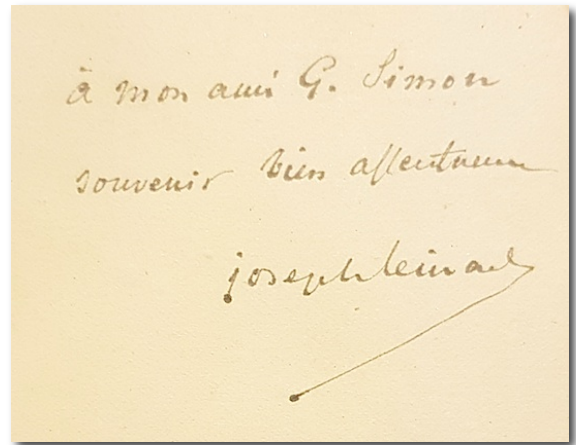 à mon ami G. Simon
souvenir bien affectueux
joseph